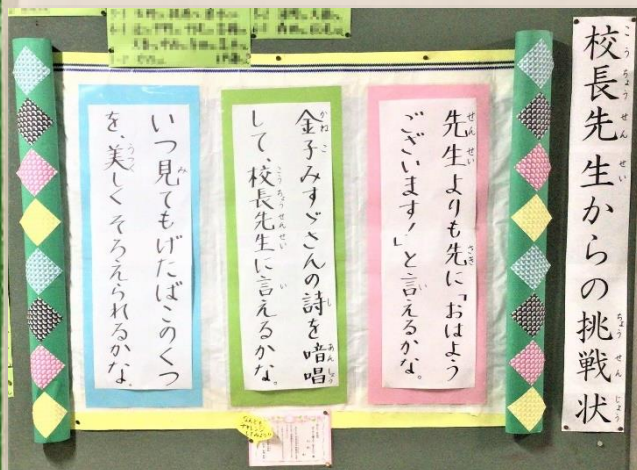 校長先生からの挑戦状
先生よりも先に「おはよう
ございます!」と言えるかな。
金子みすゞさんの詩を暗唱
して、校長先生に言えるかな。
いつ見てもげたばこのくつ
を、美しくそろえられるかな。